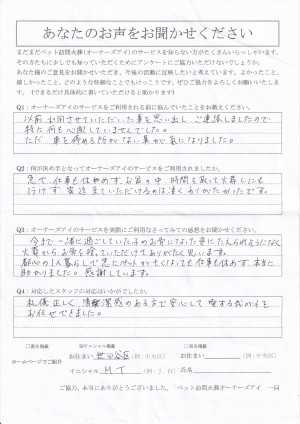 あなたのお声をお聞かせください
まだまだペット訪問火葬(オーナーズアイ)のサービスを知らない方がたくさんいらっしゃいます。
その方たちに少しでも知っていただくためにアンケートにご協力いただけないでしょうか。
あなた様のご意見をお聞かせいただき、今後の活動に反映したいと考えています。よかったこと、
嬉しかったこと、どのような些細なことでもけっこうです。ぜひご協力をよろしくお願いいたします。
(できるだけ具体的に書いていただけると助かります)
Q1:オーナーズアイのサービスをご利用される前に悩んでいたことをお教えください。
以前利用させていただいた事を思い出し、ご連絡しましたので
特に何も心配していませんでした。
ただ、車を停める所がない事が気になりました。
Q2:何が決め手となってオーナーズアイのサービスをご利用されましたか。
急で、仕事も休めず、お言の中、時間を取って火葬しにも
行けず、家迄来ていただけるのは凄くありがたかったです。
Q3:オーナーズアイのサービスを実際にご利用なさってみての感想をお聞かせください。
今まで一緒に過ごしていた子のお骨になった姿に たえられそうになく
火葬からお骨を拾っていただけてありがたく思います。
都心の1人暮らしで急にペットが亡くなっても仕事も休めず、本当に
助かりました。感謝しています。
Q4:対応したスタッフの対応はいかがでしたか。
礼儀正しく、清潔感のある方で安心して 愛する我が子を
お任せできました。
ホームページでご紹介
□イニシャル掲載
お住まい 世田谷区 (例:中央区)
イニシャル M・T (例:J.H)
お住まい (例:中央区)
氏名
ご協力、本当にありがとうございました。 ペット訪問火葬オーナーズアイ 一同